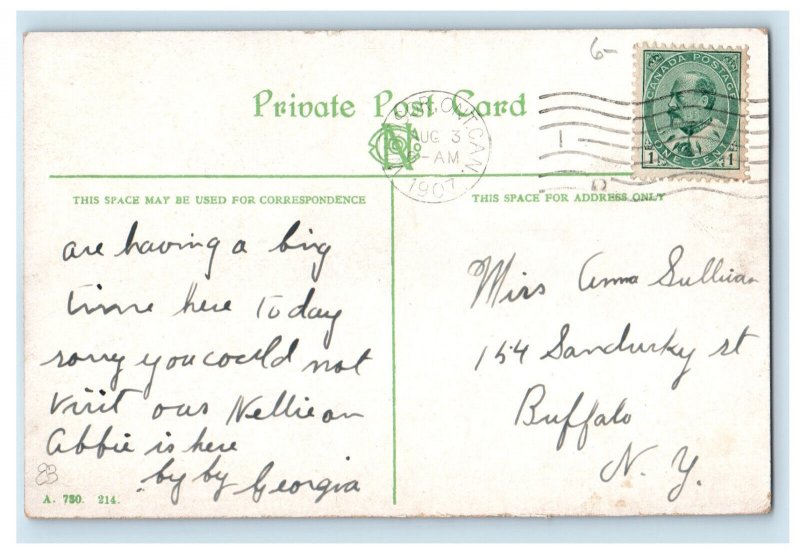 6-
Private Post Card
CANADA POSTAGE
1 ONE CENT 1
ONT. CAN.
AUG 3
-AM
1907
THIS SPACE MAY BE USED FOR CORRESPONDENCE
THIS SPACE FOR ADDRESS ONLY
are having a big
time here Today
sorry you could not
visit our Nellie an
abbie is here
by by Georgia
83
A. 730. 214.
Miss Anna Sullivan
154 Sandusky st
Buffalo
N. Y.